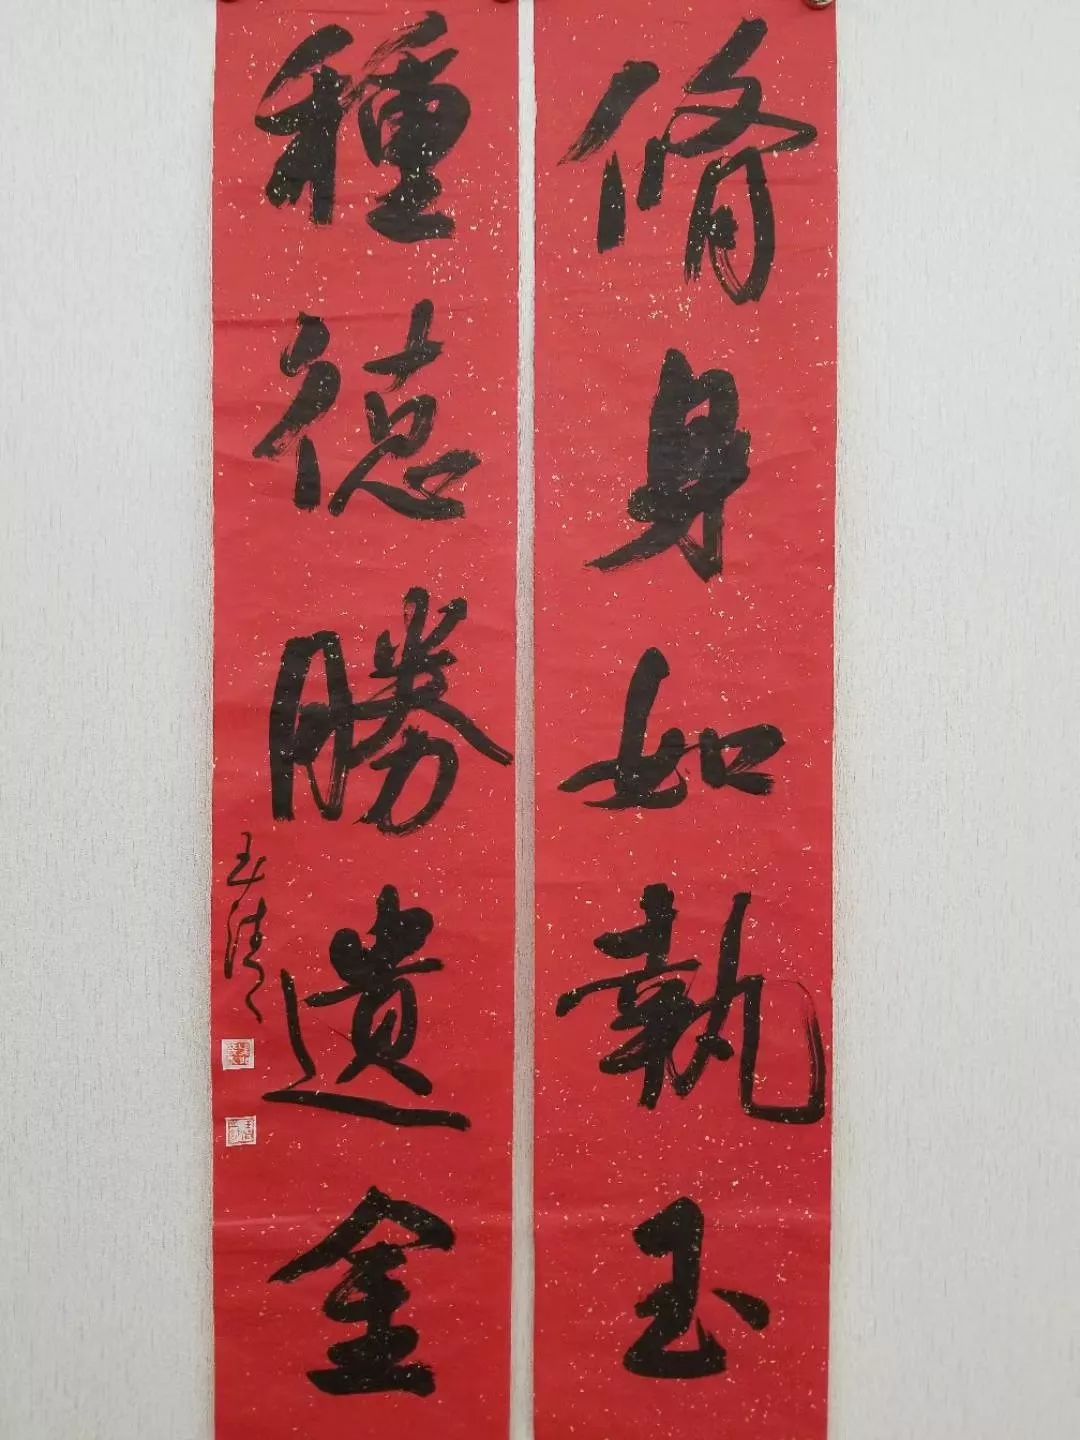 脩身如執玉
種德勝遺金
玉清